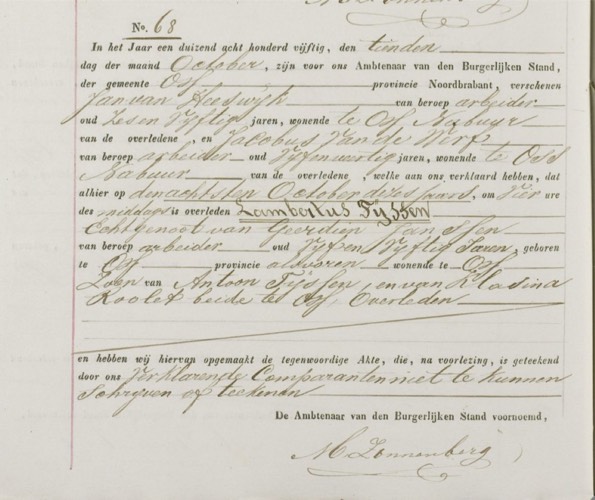 No. 68
In het Jaar een duizend acht honderd vijftig, den tienden
dag der maand October, zijn voor ons Ambtenaar van den Burgerlijken Stand,
der gemeente Oss provincie Noordbrabant, verschenen
Jan van Heeswijk van beroep arbeider
oud Zes en Vyftig jaren, wonende te Oss Nabuur
van de overledene, en Jacobus Van de Werf
van beroep arbeider oud Vyfenveertig jaren, wonende te Oss
Nabuur van de overledene, welke aan ons verklaard hebben, dat
alhier op den achtsten October dezes Jaars, om Vier ure
des middags is overleden Lambertus Tyssen
Echtgenoot van Geerdien Janssen
van beroep arbeider oud Vyf en Vyftig Jaren, geboren
te Oss provincie alvoren wonende te Oss
Zoon van Antoon Tyssen, en van Klasina
Roolet beide te Oss, Overleden
en hebben wij hiervan opgemaakt de tegenwoordige Akte, die, na voorlezing, is geteekend
door ons Verklarende Comparanten niet te kunnen
Schryven of teekenen
De Ambtenaar van den Burgerlijken Stand voornoemd,
M Zonnenberg